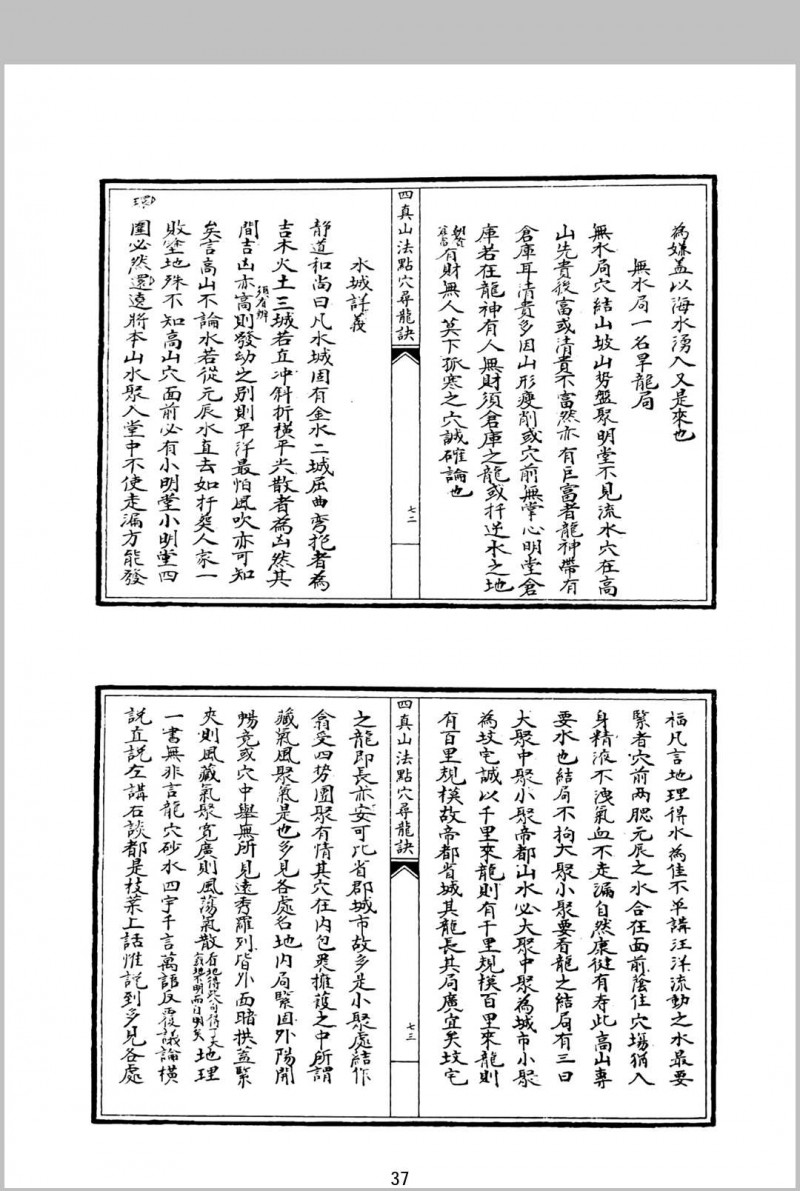 為嫌蓋以海水湧入又是來也
無水局一名旱龍局
無水局穴結山坡山勢盤聚明堂不見流水穴在高
山先貴後富或清貴不富然亦有巨富者龍神帶有
倉庫耳清貴多因山形瘦削或穴前無掌心明堂倉
庫若在龍神有人無財須倉庫之龍或扦逆水之地
有財無人莫下孤寒之穴誠確論也
四真山法點穴尋龍訣
七二
水城詳義
靜道和尚曰凡水城固有金水二城屈曲彎抱者為
吉木火土三城若直冲斜折橫平尖散者為凶然其
間吉凶亦高則發幼之別則平洋最怕風吹亦可知
須有辨
矣言高山不論水若從元辰水直去如扦葬人家一
敗塗地殊不知高山穴面前必有小明堂小明堂四
圍必然還遠將本山水聚入堂中不使走漏方能發
環
福凡言地理得水為佳不单講汪洋流動之水最要
緊者穴前兩腮元辰之水合在面前蔭住穴場猶人
身精液不洩氣血不走漏自然康健有寿此高山專
要水也結局不拘大聚小聚要看龍之結局有三曰
大聚中聚小聚帝都山水必大聚中聚為城市小聚
為坟宅誠以千里來龍則有千里規模百里來龍則
有百里規模故帝都省城其龍長其局廣宜矣坟宅
四真山法點穴尋龍訣
七三
之龍即長亦安可比省郡城市故多是小聚處結作
翕受四势團聚有情其穴在内包裹擁護之中所謂
藏氣風聚氣是也多見各處名地内局緊固外陽開
暢竟或穴中舉無所見遠秀羅列皆外面暗拱蓋緊
夾則風藏氣聚寬廣則風蕩氣散地理
一書無非言龍穴砂水四字千言萬語反覆議論橫
說直說左講右談都是枝葉上話惟說到多見各處
37